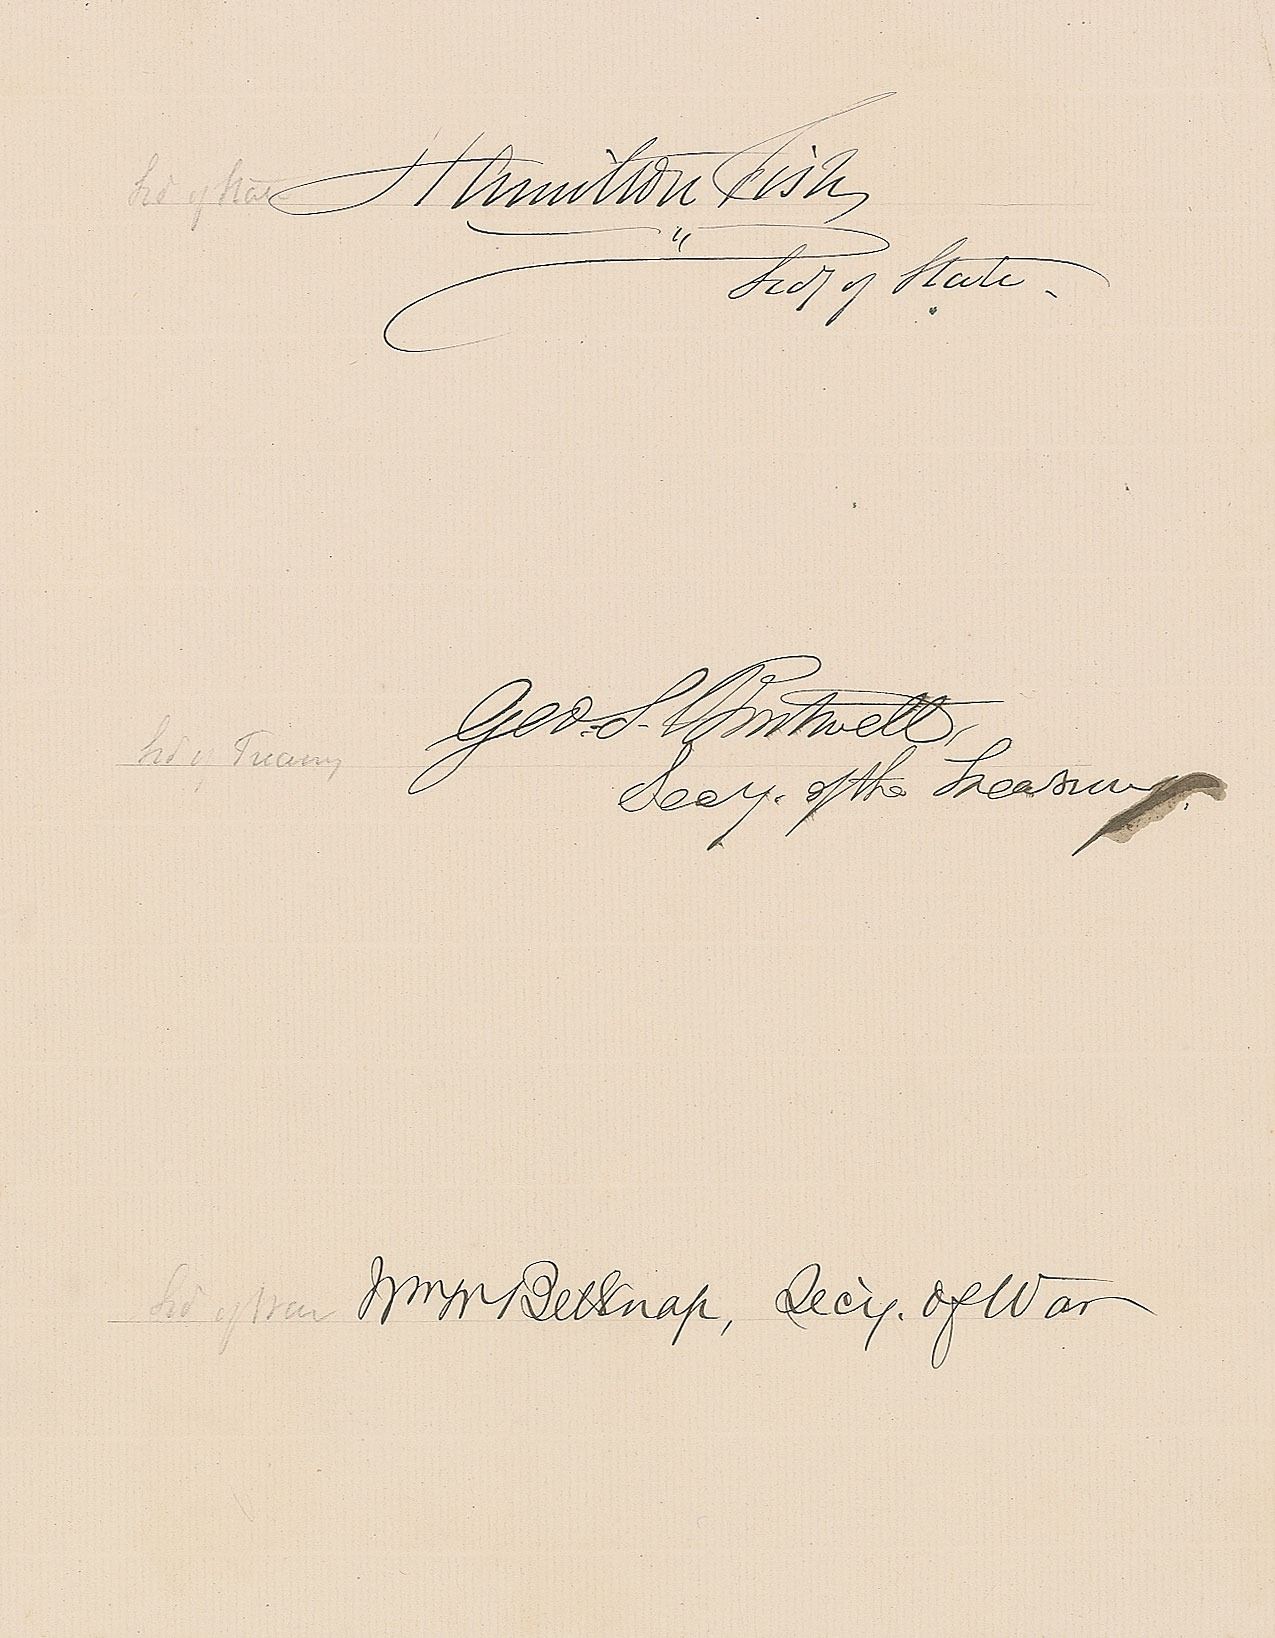 Sec of State Hamilton Fish
Secy of State -
Geo. S. Boutwell,
Sec of Treasury
Secy. of the Treasury.
Sec of War Wm W Belknap, Secy. of War